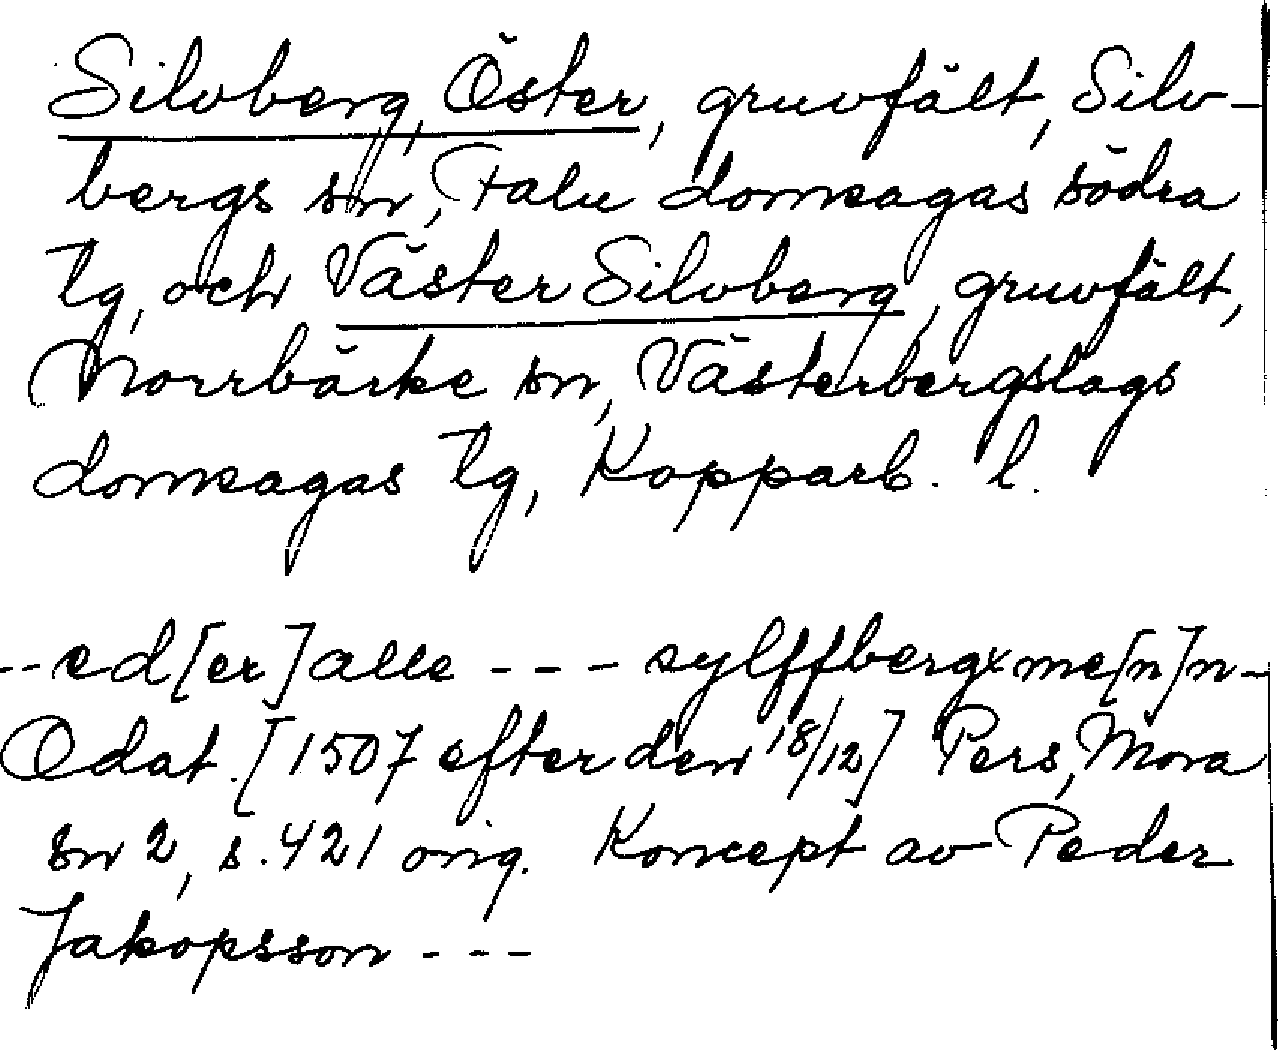 Silvberg, Öster, gruvfält, Silv-
bergs sn, Falu domsagas södra
tg, och Väster Silvberg, gruvfält,
Norrbärke sn, Västerbergslags
domsagas tg, Kopparb. l.
-- ed[er] alle --- sylffbergxme[n]n-
Odat. [1507 efter den 18/12] Pers, Mora
sn 2, s. 421 orig. Koncept av Peder
Jakopsson ---